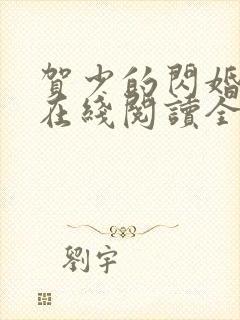 賀少的閃婚
在綫閱讀全
劉宇